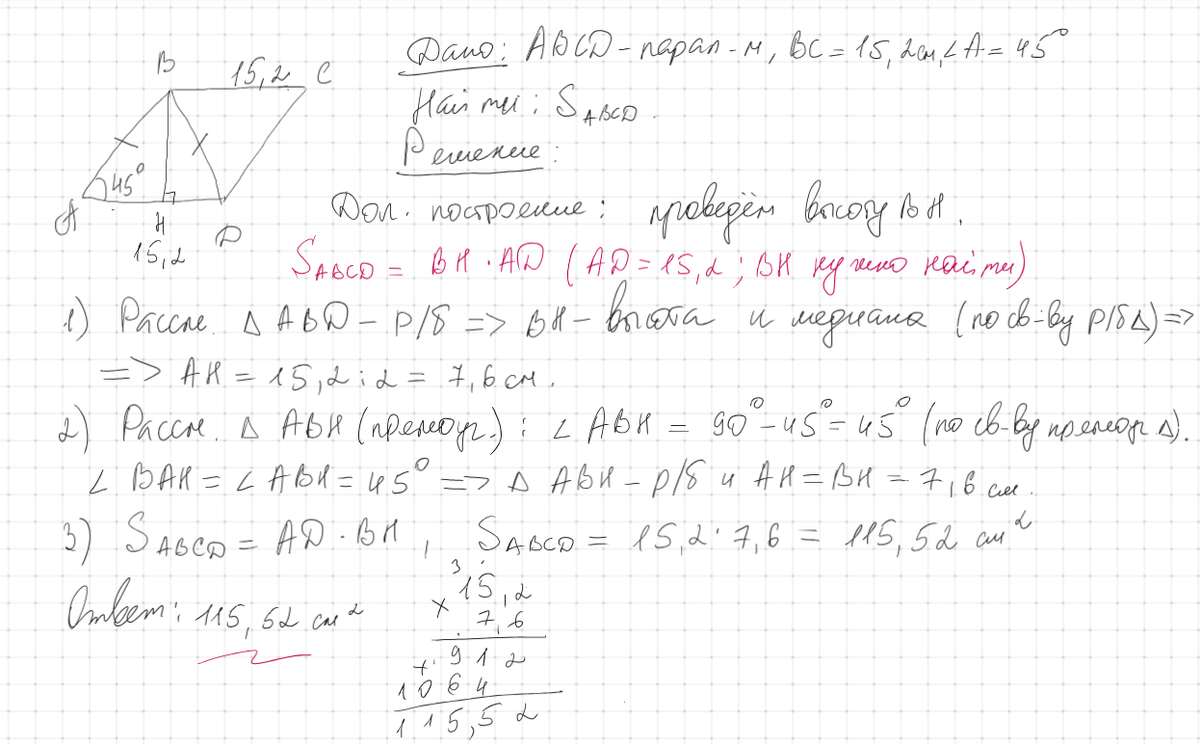 Дано: ABCD - парал-м, BC = 15,2см, ∠A = 45°
Найти: S ABCD.
Решение:
B 15,2 C
45°
A H D
15,2
Доп. построение: проведём высоту BH.
S ABCD = BH · AD (AD = 15,2; BH нужно найти)
1) Рассм. Δ ABD - р/б => BH - высота и медиана (по св-ву р/б Δ) =>
=> AH = 15,2 : 2 = 7,6 см.
2) Рассм. Δ ABH (прямоуг.) : ∠ ABH = 90° - 45° = 45° (по св-ву прямоуг Δ).
∠ BAH = ∠ ABH = 45° => Δ ABH - р/б и AH = BH = 7,6 см.
3) S ABCD = AD · BH , S ABCD = 15,2 · 7,6 = 115,52 см²
Ответ: 115,52 см²
3
15,2
× 7,6
+ 912
1064
115,52